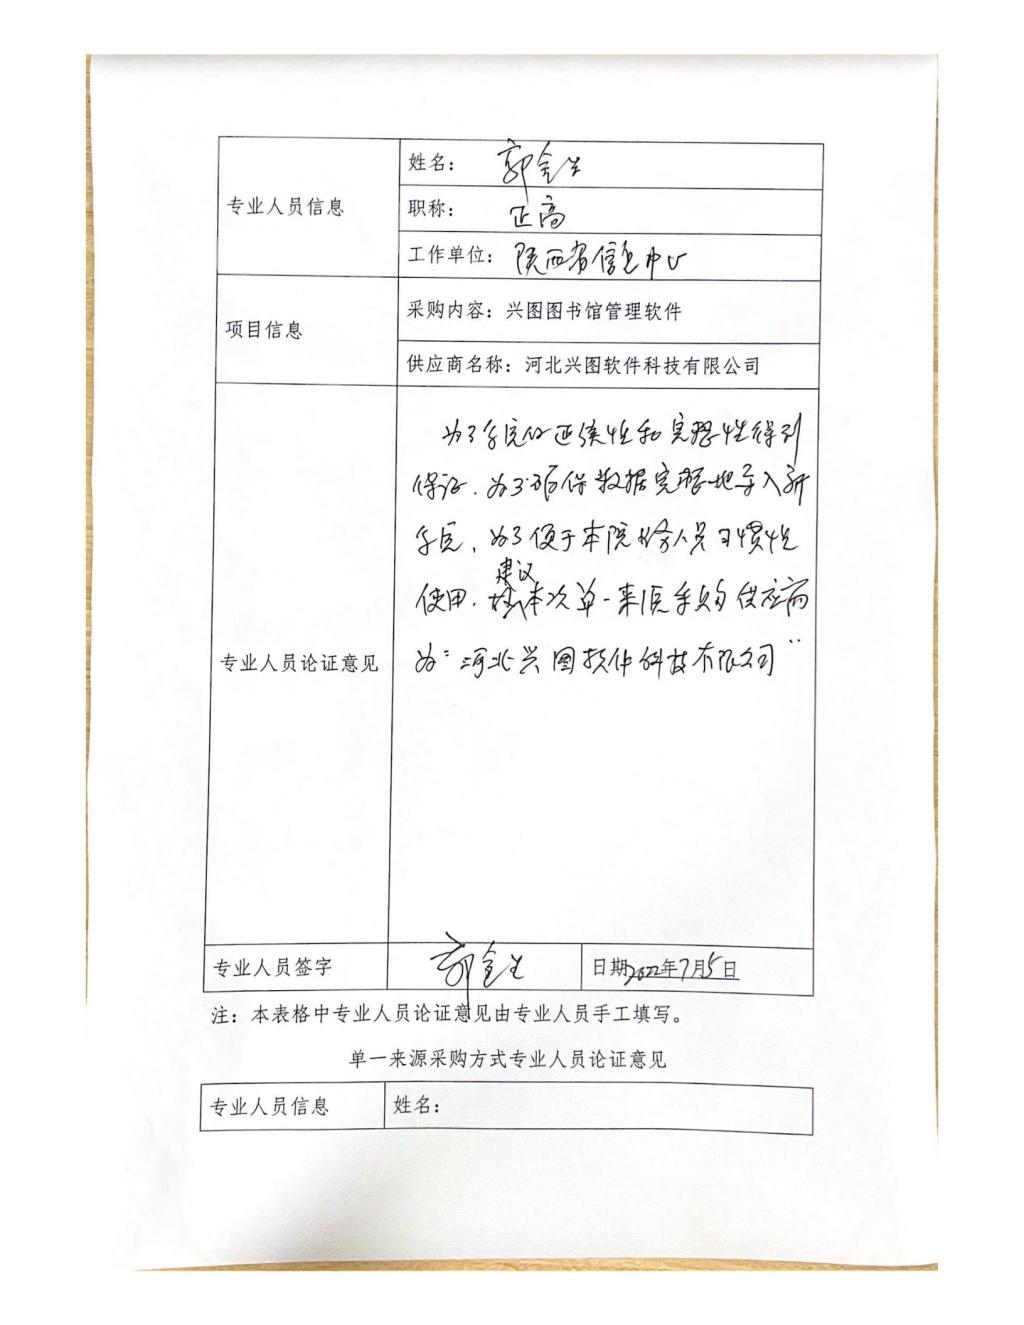 专业人员信息
姓名：郭全生
职称：正高
工作单位：陕西省信息中心
项目信息
采购内容：兴图图书馆管理软件
供应商名称：河北兴图软件科技有限公司
专业人员论证意见
为了系统的延续性和完整性得到
保证、为了确保数据完整地导入新
系统、为了便于本院业务人员习惯性
使用，建议本次单一来源采购供应商
为“河北兴图软件科技有限公司”
专业人员签字
郭全生
日期2022年7月5日
注：本表格中专业人员论证意见由专业人员手工填写。
单一来源采购方式专业人员论证意见
专业人员信息
姓名：